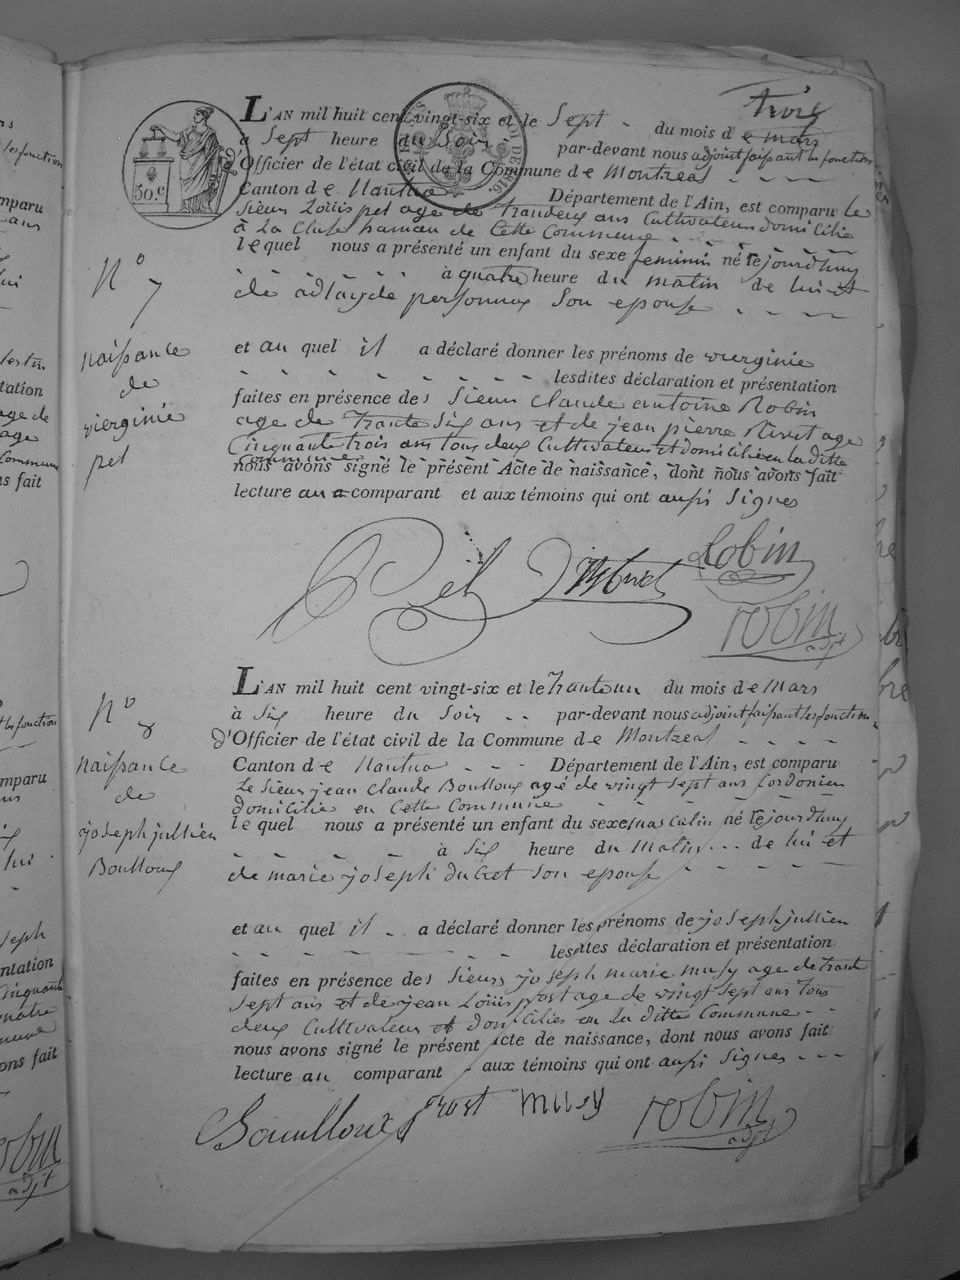 trois
L'AN mil huit cent vingt-six et le Sept du mois de mars
à Sept heure du Soir par-devant nous adjoint faisant les fonction
Officier de l'état civil de la Commune de Montreal
Canton de Nantua Département de l'Ain, est comparu Le
Sieur Louis pet age de trandeux ans Cultivateur domicilié
à La Cluse hameau de Cette Commune
lequel nous a présenté un enfant du sexe feminin né cejourdhuy
à quatre heure du matin de lui et
de adlayde personneux Son epouse
50 c.
N° 7
naissance
de
vierginie
pet
et au quel il a déclaré donner les prénoms de vierginie
lesdites déclaration et présentation
faites en présence des Sieur Claude antoine Robin
age de trante Six ans et de jean pierre Rivet age
Cinquante trois ans tous deux Cultivateur et domicilié en la ditte
Commune
nous avons signé le présent Acte de naissance, dont nous avons fait
lecture au comparant et aux témoins qui ont aussi Signes
Pet Robin
robin
adjt
L'AN mil huit cent vingt-six et le trantoun du mois de Mars
à Six heure du Soir par-devant nous adjoint faisant les fonction
d'Officier de l'état civil de la Commune de Montreal
Canton de Nantua Département de l'Ain, est comparu
Le Sieur jean Claude Boulloux agé de vingt Sept ans Cordonien
domicilié en Cette Commune
lequel nous a présenté un enfant du sexe mas Culin né cejourdhuy
à Six heure du Matin de lui et
de marie joseph ducret Son epouse
N° 8
naissance
de
joseph jullien
Boulloux
et au quel il a déclaré donner les prénoms de joseph jullien
lesdites déclaration et présentation
faites en présence des Sieurs joseph marie musy age de trante
Sept ans et de jean Louis prost age de vingt Sept ans tous
deux Cultivateur et domiciliés en la ditte Commune
nous avons signé le présent Acte de naissance, dont nous avons fait
lecture au comparant aux témoins qui ont aussi Signes
Boulloux prost musy robin
adjt